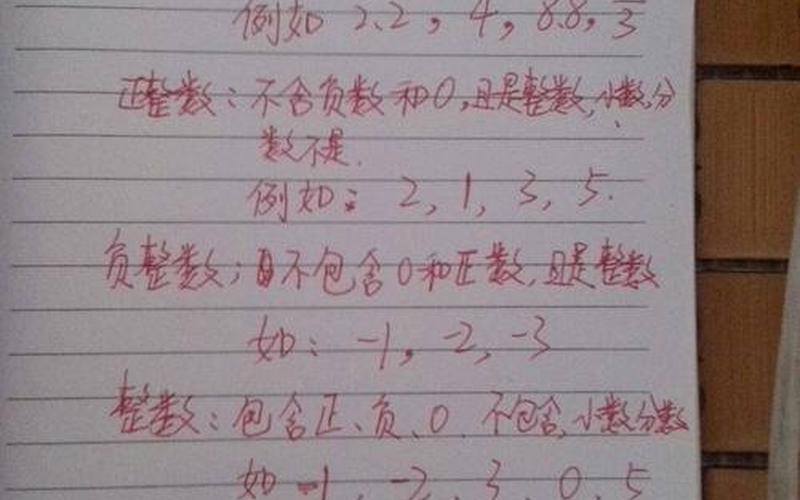 例如 2.2, 4, 8.8, 3
正整数：不含负数和0,且是整数,小数,分
数不是.
例如：2, 1, 3, 5.
负整数；不包含0和正数,且是整数
如：-1, -2, -3
整数：包含正、负、0. 不包含,小数分数
如 -1, -2, 3, 0, 5